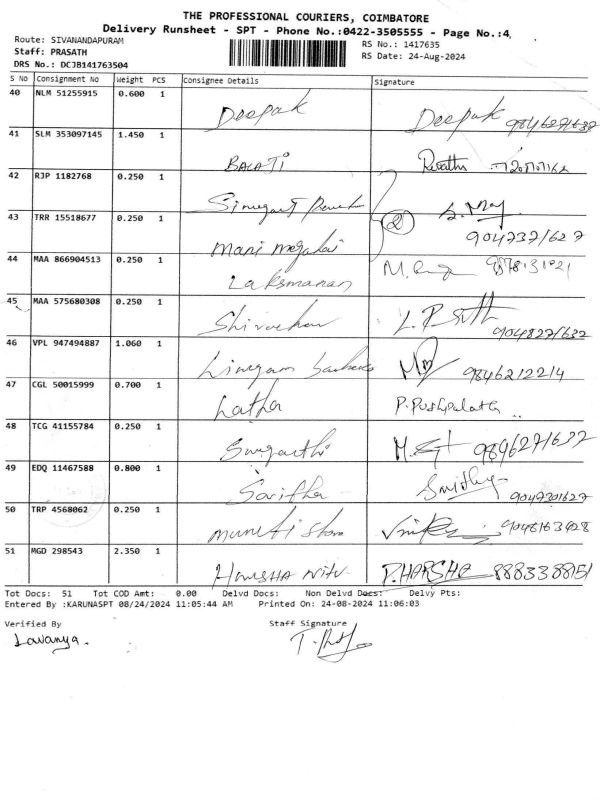 THE PROFESSIONAL COURIERS, COIMBATORE
Delivery Runsheet - SPT - Phone No.:0422-3505555 - Page No.:4,
Route: SIVANANDAPURAM
Staff: PRASATH
DRS No.: DCJB141763504
RS No.: 1417635
RS Date: 24-Aug-2024
S No Consignment No Weight PCS Consignee Details Signature
40 NLM 51255915 0.600 1 Deepak Deepak
41 SLM 353097145 1.450 1 BALAJI
42 RJP 1182768 0.250 1
43 TRR 15518677 0.250 1 Mani megalai 2 904737/627
44 MAA 866904513 0.250 1 Laksmanan
45 MAA 575680308 0.250 1 904827/632
46 VPL 947494887 1.060 1 9846212214
47 CGL 50015999 0.700 1 Latha P. Pushpalatha
48 TCG 41155784 0.250 1 989627/632
49 EDQ 11467588 0.800 1 Savitha 9047301627
50 TRP 4568062 0.250 1
51 MGD 298543 2.350 1 P. HARSHA 8883388151
Tot Docs: 51 Tot COD Amt: 0.00 Delvd Docs: Non Delvd Docs: Delvy Pts:
Entered By :KARUNASPT 08/24/2024 11:05:44 AM Printed On: 24-08-2024 11:06:03
Verified By Staff Signature
Lavanya.